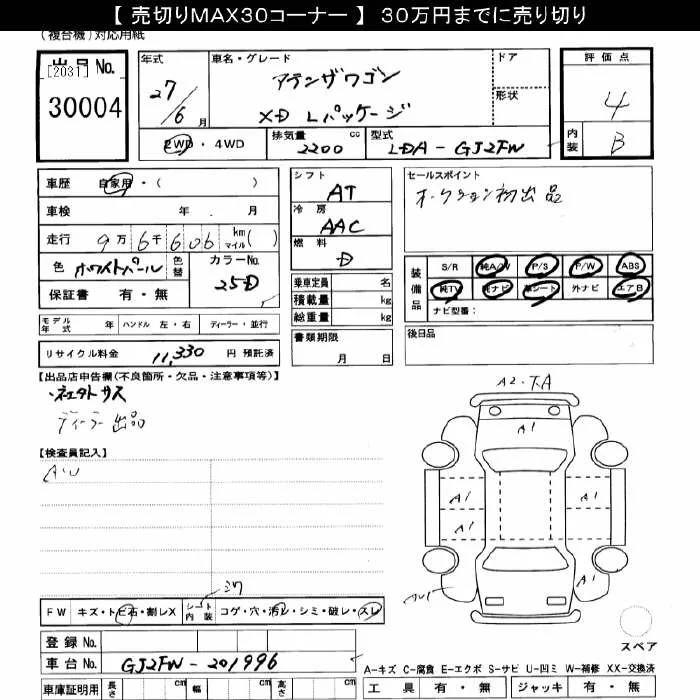 【 売切りMAX30コーナー 】 30万円までに売り切り
(複合機)対応用紙
出品No.
[2031]
30004
年式 車名・グレード ドア
27/6 月
アテンザワゴン
XD Lパッケージ
形状
2WD・4WD
排気量 cc
2200
型式
LDA-GJ2FW
評価点
4
内装
B
車歴 自家用・( )
車検 年 月
走行 9万6千606 km マイル( )
色 ホワイトパール 色替 カラーNo. 25D
保証書 有・無
シフト
AT
冷房
AAC
燃料
D
乗車定員 名
積載量 kg
総重量 kg
書類期限
月 日
セールスポイント
オークション初出品
装備品
S/R 純A/W P/S P/W ABS
純TV 純ナビ 革シート 外ナビ エアB
ナビ型番:
後日品
モデル年式 年 ハンドル 左・右 ディーラー・並行
リサイクル料金 11,330 円 預託済
【出品店申告欄(不良箇所・欠品・注意事項等)】
ディーラー出品
【検査員記入】
A・U
FW キズ・トビ石・割レX シート内装 コゲ・穴・汚レ・シミ・破レ・スレ
登録No.
車台No. GJ2FW-201996
車庫証明用 長さ cm 幅 cm 高さ cm
A2・TA
A1
A1
A1
A1
A1
スペア
A-キズ C-腐食 E-エクボ S-サビ U-凹ミ W-補修 XX-交換済
工具 有・無 ジャッキ 有・無